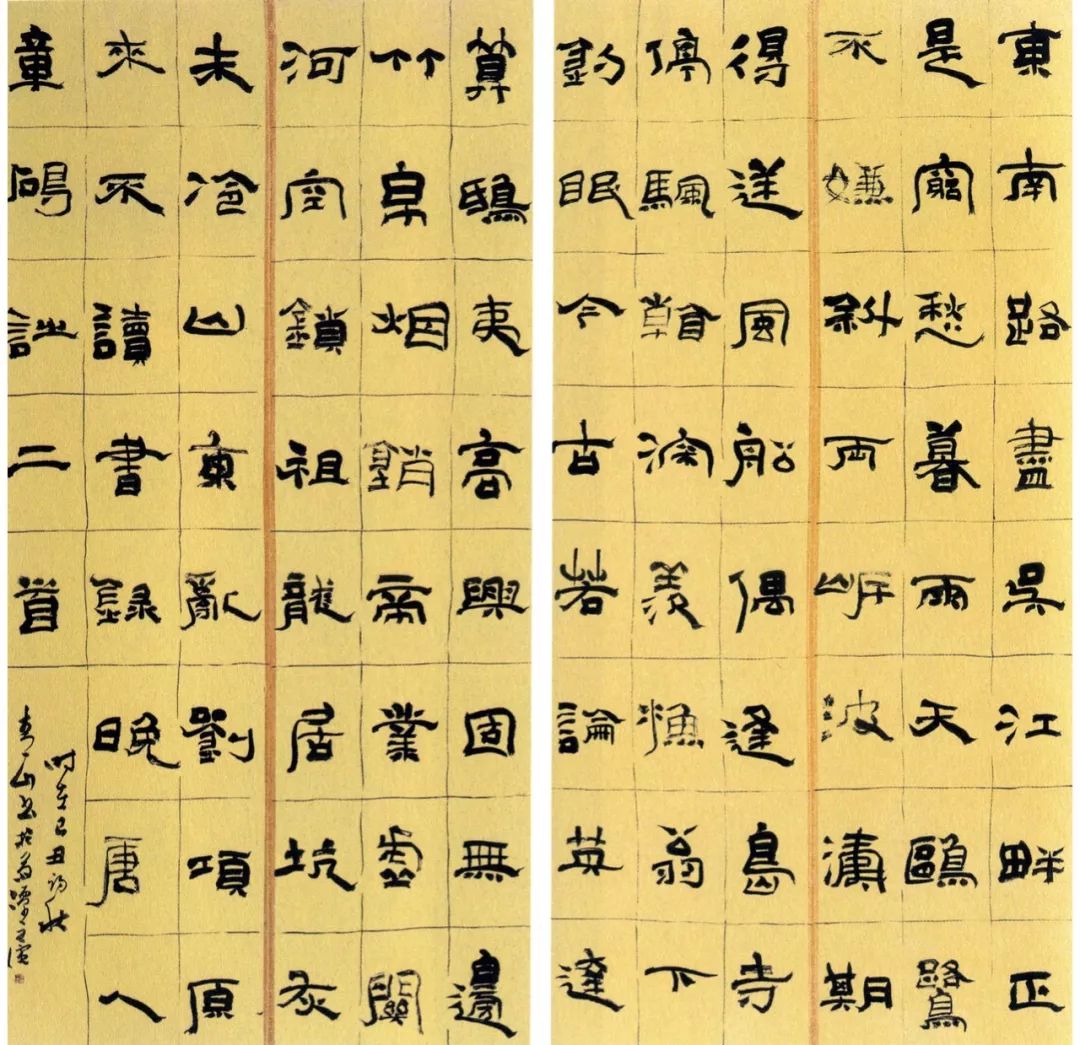 東南路盡吳江畔正
是窮愁暮雨天鷗鷺
不嫌斜兩岸波濤期
得逆風船偶逢島寺
停颿看深羨漁翁下
釣眠今古若論英達
算鴟夷高興固無邊
竹帛烟銷帝業虛關
河空鎖祖龍居坑灰
未冷山東亂劉項原
來不讀書錄晚唐人
章碣詩二首
時在己丑初秋